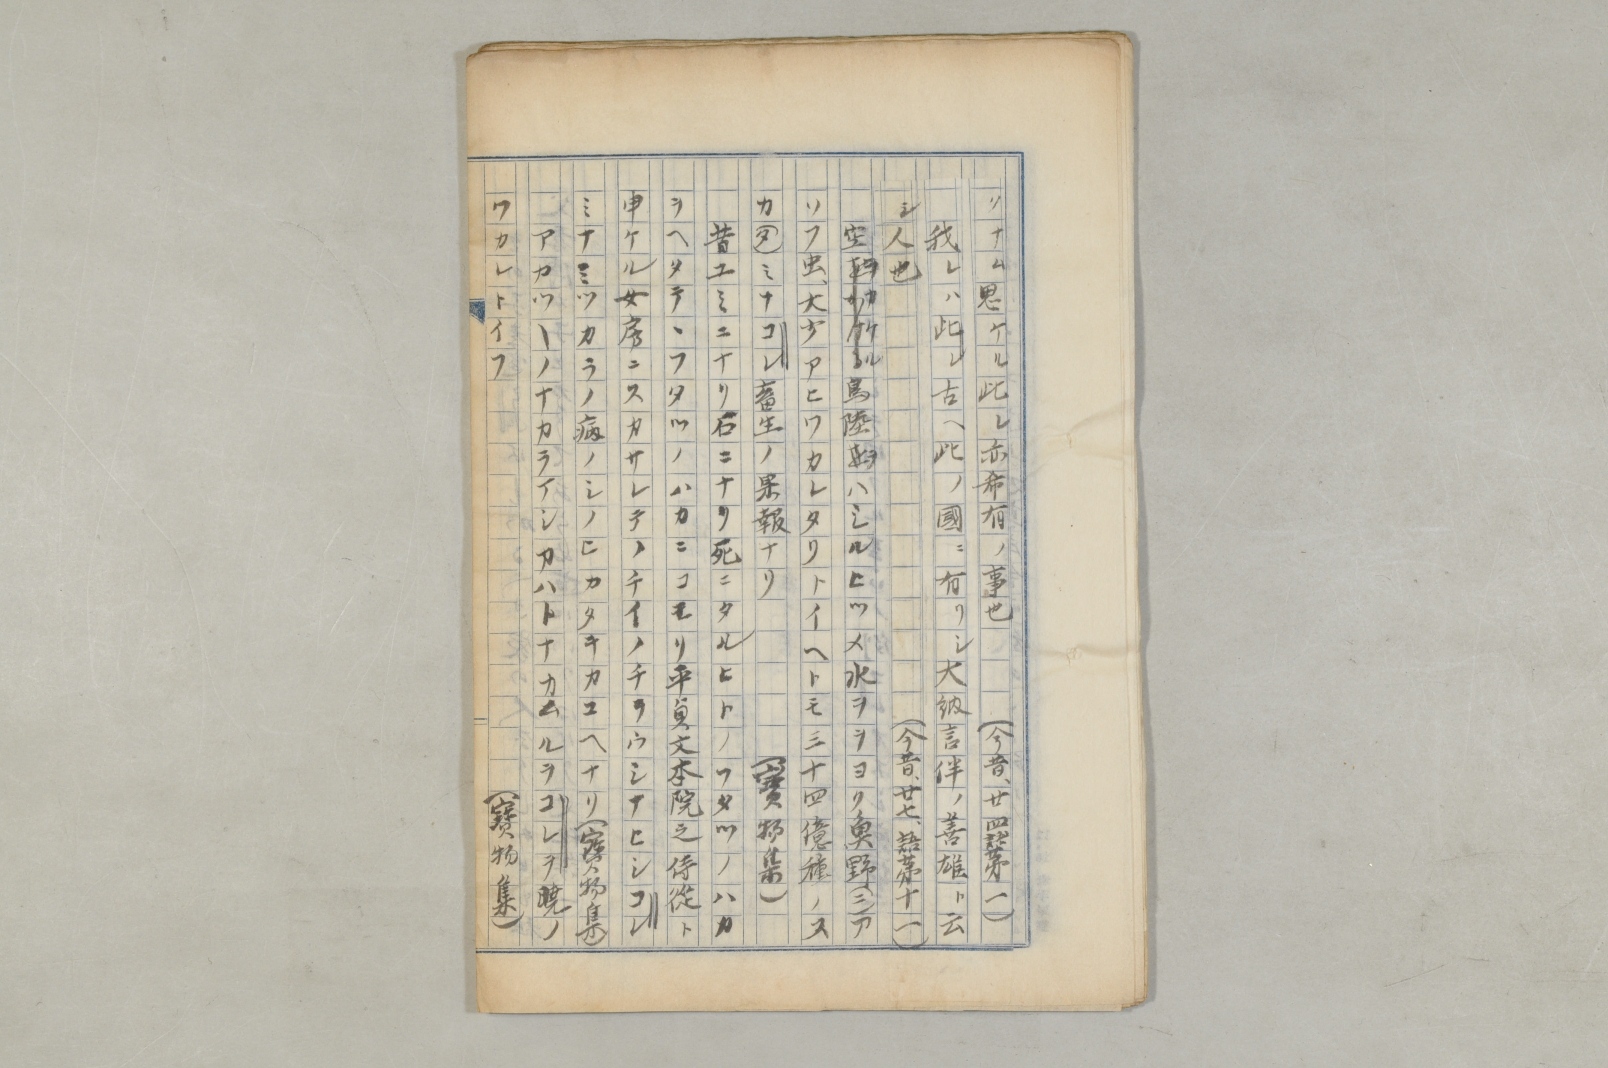 リナム思ケル此レ亦希有ノ事也　(今昔、廿四語第一)
我レハ此レ古ヘ此ノ國ニ有リシ大納言伴ノ善雄ト云
シ人也　(今昔、廿七、語第十一)
空ヲカケル鳥陸ヲハシルヒツメ水ヲヲヨク魚野ニア
ソフ虫、大少アヒワカレタリトイヘトモ三十四億種ノス
カタミナコレ畜生ノ果報ナリ　(寶物集)
昔エミニナリ石ニナリ死ニタルヒトノフタツノハカ
ヲヘタテヽフタツノハカニコモリ平貞文本院之侍從ト
申ケル女房ニスカサレテノチイノチヲウシナヒシコレ
ミナミツカラノ病ノシノヒカタキカユヘナリ(寶物集)
アカツ\ノナカラインヌハトナカムルヲコレヲ曉ノ
ワカレトイフ　(寶物集)